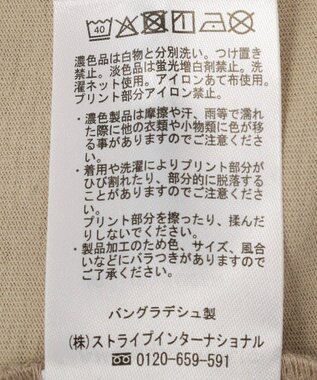 40
濃色品は白物と分別洗い。つけ置き
禁止。淡色品は蛍光増白剤禁止。洗
濯ネット使用。アイロンあて布使用。
プリント部分アイロン禁止。
・濃色製品は摩擦や汗、雨等で濡れ
た際に他の衣類や小物類に色が移
る事がありますのでご注意くださ
い。
・着用や洗濯によりプリント部分が
ひび割れたり、部分的に脱落する
ことがありますのでご注意くださ
い。
プリント部分を擦ったり、揉んだ
りしないでください。
・製品加工のため色、サイズ、風合
いなどにバラつきがありますのでご
了承ください。
バングラデシュ製
(株)ストライプインターナショナル
0120-659-591